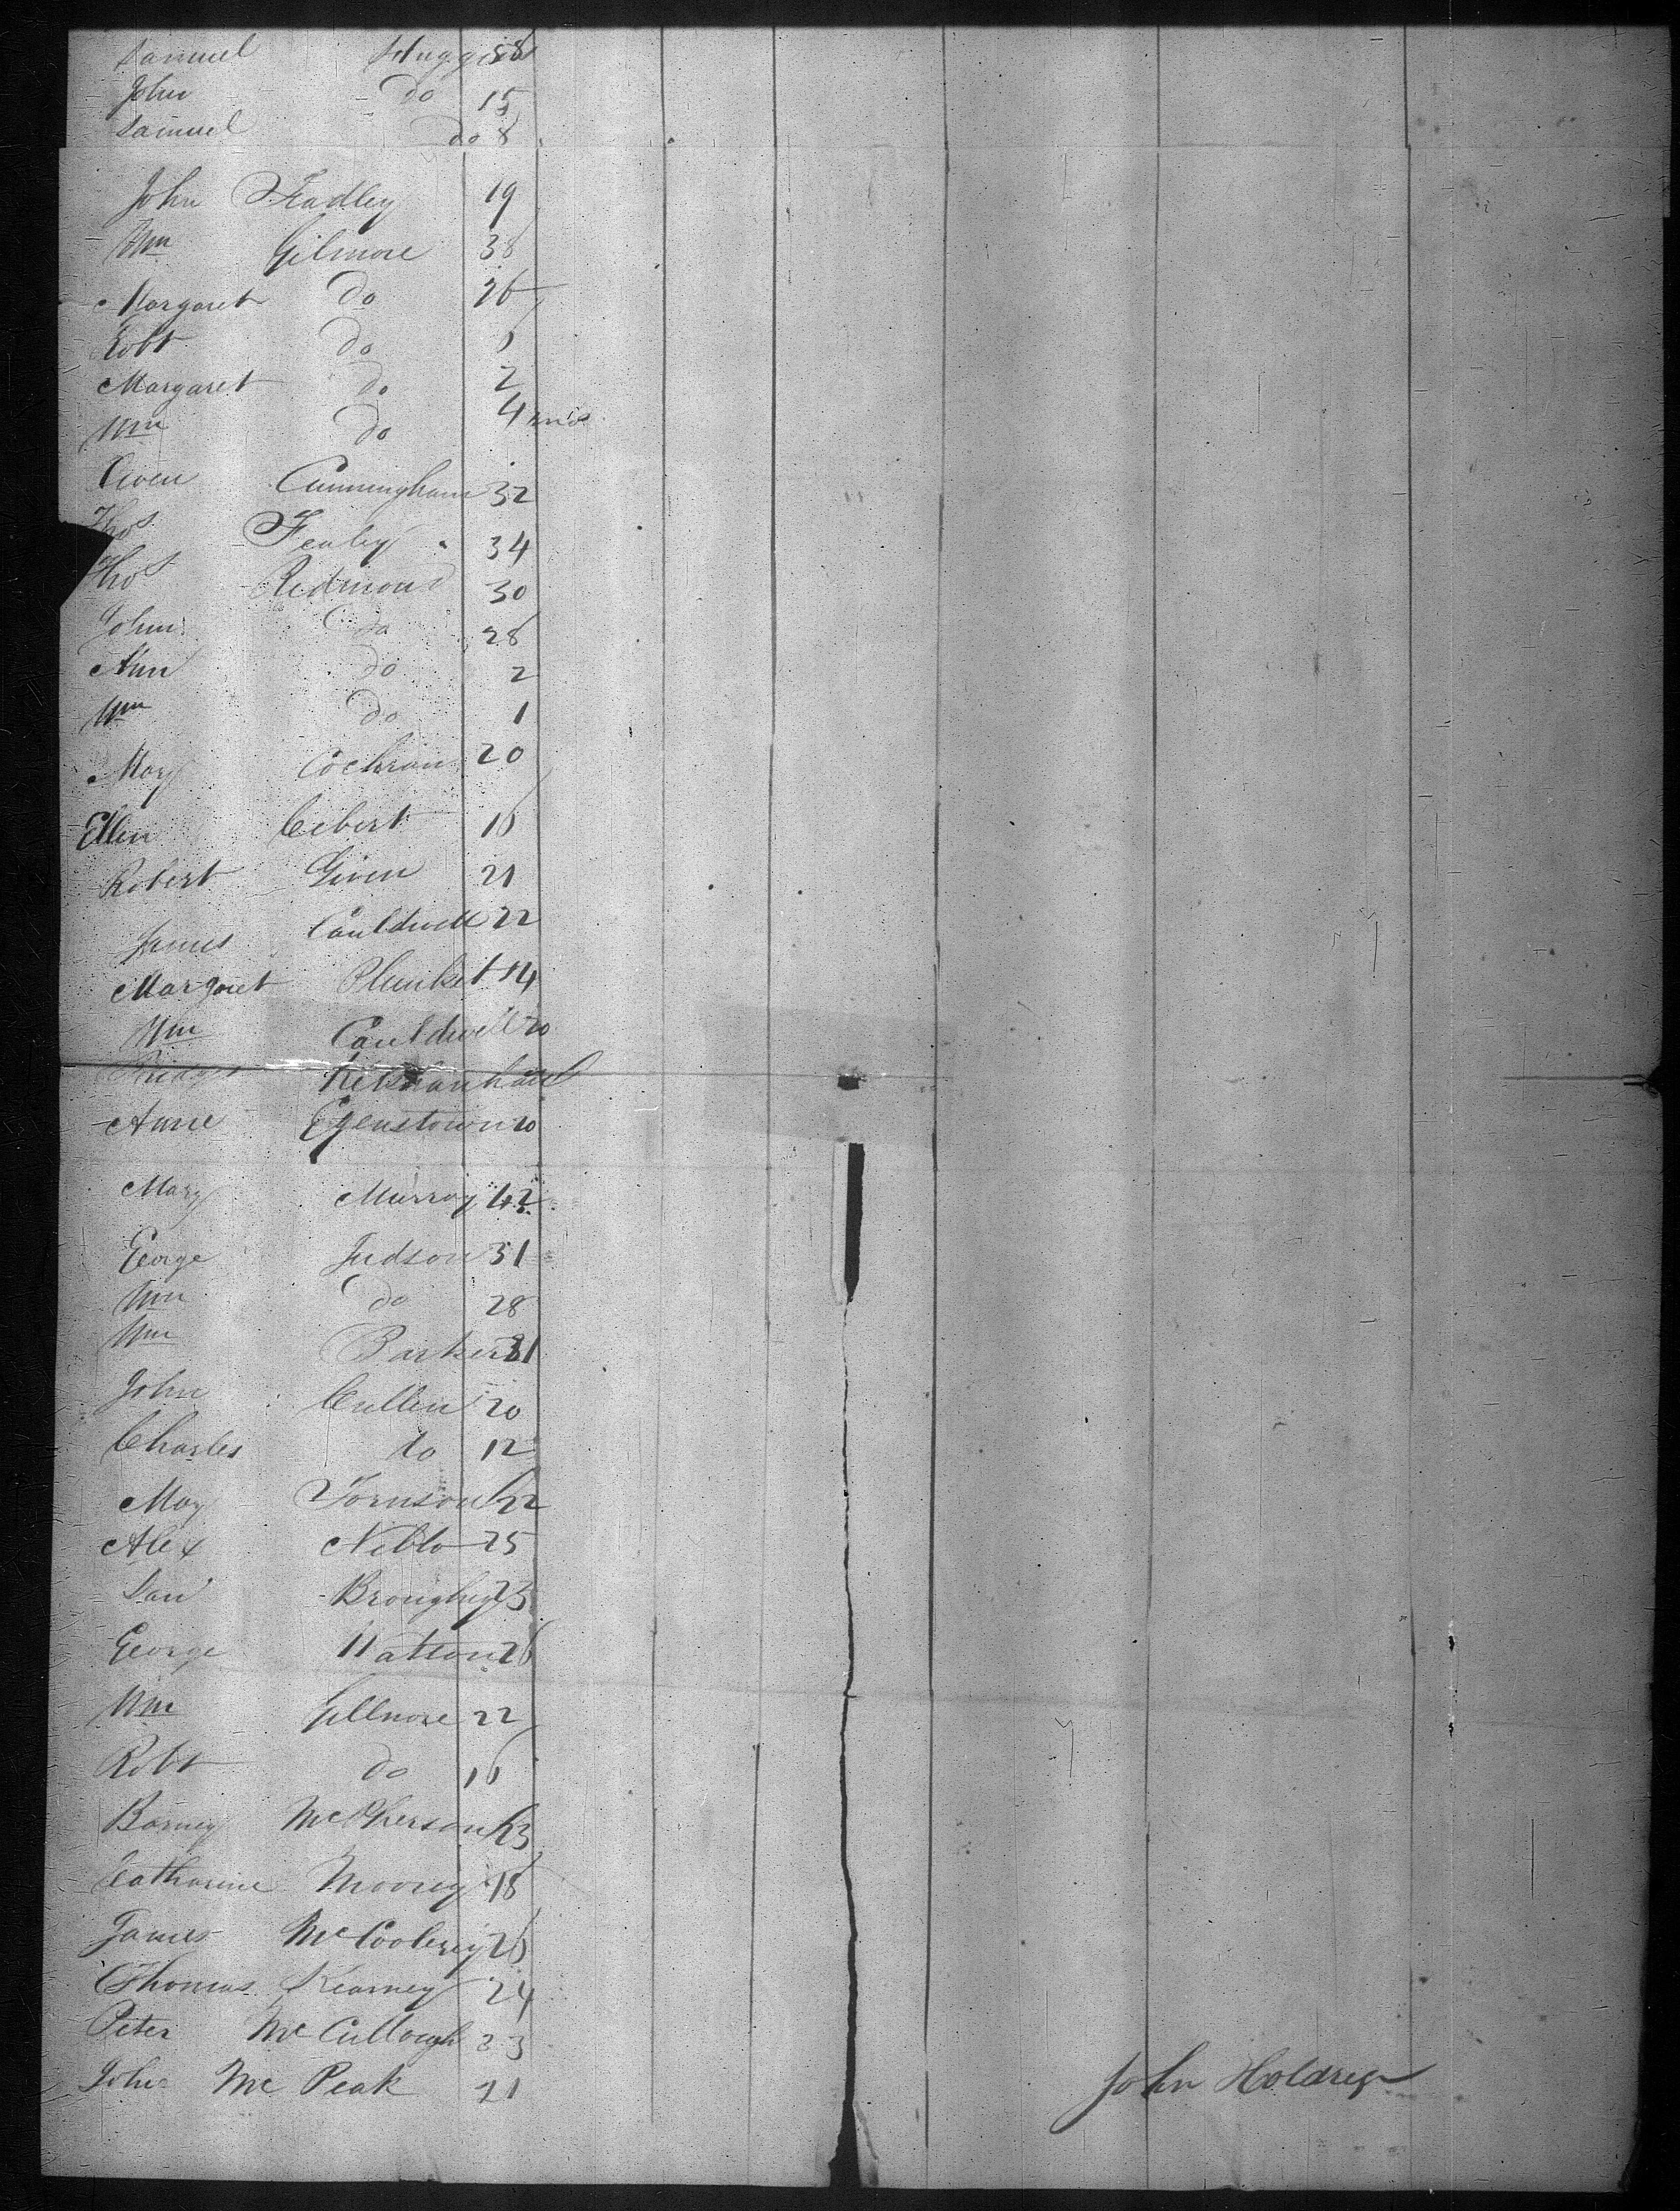 Samuel Huggins 38
John do 15
Samuel do 8
John Headley 19
Wm Gilmore 38
Margaret do 26
Robt do 6
Margaret do 2
Wm do 4 mos
Owen Cunningham 32
Thos Fealey 34
Thos Redmond 30
John do 28
Ann do 2
Wm do 1
Mary Cochran 20
Ellen Cebert 16
Robert Given 21
James Cauldwell 22
Margaret Plunket 14
Wm Cauldwell 20
Anne Egenstown 20
Mary Murray 42
George Judson 31
Wm do 28
Wm Barker 31
John Cullen 20
Charles do 12
May Tornson 22
Alex Niblo 25
Dan Broughy 23
George Watson 26
Wm Gillmore 22
Robt do 16
Barney McPherson 23
Catharine Moorey 18
James McCoolerey 26
Thomas Kearney 24
Peter McCullough 23
John Mc Peak 21
John Holdrege